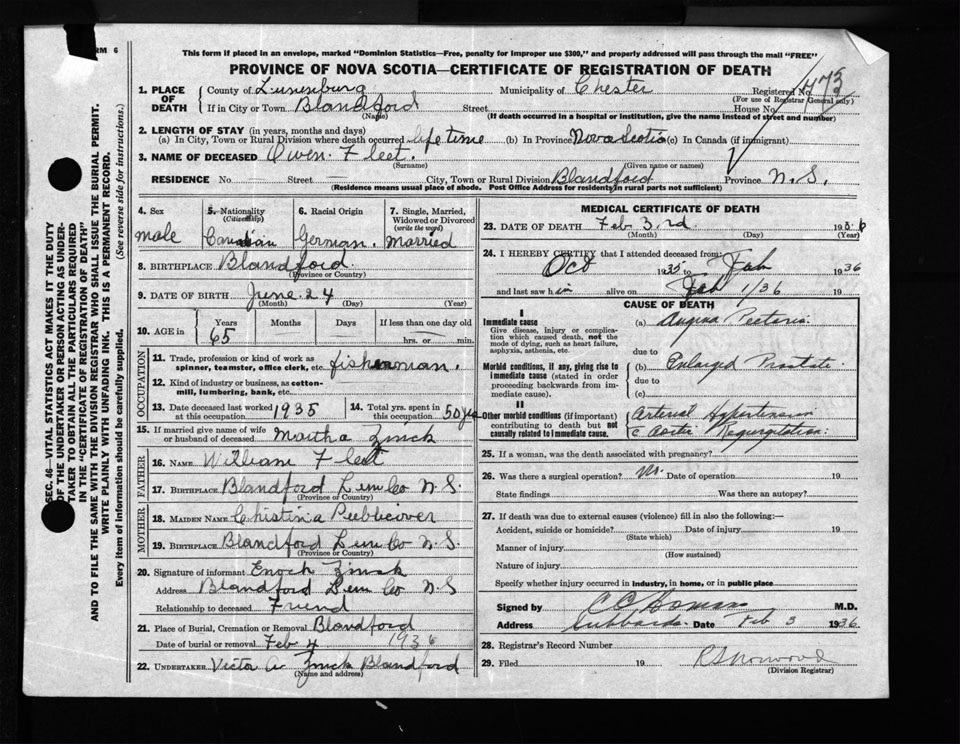 RM 6
This form if placed in an envelope, marked "Dominion Statistics—Free, penalty for improper use $300," and properly addressed will pass through the mail "FREE"
PROVINCE OF NOVA SCOTIA—CERTIFICATE OF REGISTRATION OF DEATH
1. PLACE OF DEATH { County of Lunenburg Municipality of Chester Registered No.
(For use of Registrar General only)
If in City or Town Blandford Street House No.
(Name) (If death occurred in a hospital or institution, give the name instead of street and number)
2. LENGTH OF STAY (in years, months and days)
(a) In City, Town or Rural Division where death occurred life time (b) In Province Nova Scotia (c) In Canada (if immigrant)
3. NAME OF DECEASED Owen Fleet.
(Surname) (Given name or names)
RESIDENCE No. — Street — City, Town or Rural Division Blandford Province N.S.
(Residence means usual place of abode. Post Office Address for residents in rural parts not sufficient)
4. Sex male
5. Nationality (Citizenship) Canadian
6. Racial Origin German.
7. Single, Married, Widowed or Divorced (write the word) Married
8. BIRTHPLACE Blandford.
(Province or Country)
9. DATE OF BIRTH June 24
(Month) (Day) (Year)
10. AGE in { Years 65 Months Days If less than one day old
hrs. or min.
OCCUPATION
11. Trade, profession or kind of work as spinner, teamster, office clerk, etc. fisherman.
12. Kind of industry or business, as cotton-mill, lumbering, bank, etc.
13. Date deceased last worked at this occupation 1935 14. Total yrs. spent in this occupation 50 yrs
15. If married give name of wife or husband of deceased Martha Zinck
FATHER
16. NAME William Fleet
17. BIRTHPLACE Blandford Lun Co N.S.
(Province or Country)
MOTHER
18. MAIDEN NAME Christina Publicover
19. BIRTHPLACE Blandford Lun Co N.S
(Province or Country)
20. Signature of informant Enoch Zinck
Address Blandford Lun Co N.S
Relationship to deceased Friend
21. Place of Burial, Cremation or Removal Blandford
Date of burial or removal Feb 4 1936
22. UNDERTAKER Victor Zinck Blandford
(Name and address)
MEDICAL CERTIFICATE OF DEATH
23. DATE OF DEATH Feb 3rd 1936
(Month) (Day) (Year)
24. I HEREBY CERTIFY that I attended deceased from:
Oct 1935 to Feb 1936
and last saw him alive on Feb 1/36 19
CAUSE OF DEATH
I
Immediate cause (a) Angina Pectoris
Give disease, injury or complication which caused death, not the mode of dying, such as heart failure, asphyxia, asthenia, etc.
due to
Morbid conditions, if any, giving rise to immediate cause (stated in order proceeding backwards from immediate cause).
(b) Enlarged Prostate
due to
(c)
II
Other morbid conditions (if important) contributing to death but not causally related to immediate cause.
Arterial Hypertension
c Aortic Regurgitation.
25. If a woman, was the death associated with pregnancy?
26. Was there a surgical operation? No. Date of operation 19
State findings Was there an autopsy?
27. If death was due to external causes (violence) fill in also the following:—
Accident, suicide or homicide? Date of injury 19
(State which)
Manner of injury
(How sustained)
Nature of injury
Specify whether injury occurred in industry, in home, or in public place
Signed by M.D.
Address Hubbards. Date Feb 3 1936.
28. Registrar's Record Number
29. Filed 19
(Division Registrar)
SEC. 46—VITAL STATISTICS ACT MAKES IT THE DUTY
OF THE UNDERTAKER OR PERSON ACTING AS UNDER-
TAKER TO OBTAIN ALL THE PARTICULARS REQUIRED
IN THE "CERTIFICATE OF REGISTRATION OF DEATH"
AND TO FILE THE SAME WITH THE DIVISION REGISTRAR WHO SHALL ISSUE THE BURIAL PERMIT.
WRITE PLAINLY WITH UNFADING INK. THIS IS A PERMANENT RECORD.
Every item of information should be carefully supplied. (See reverse side for instructions.)